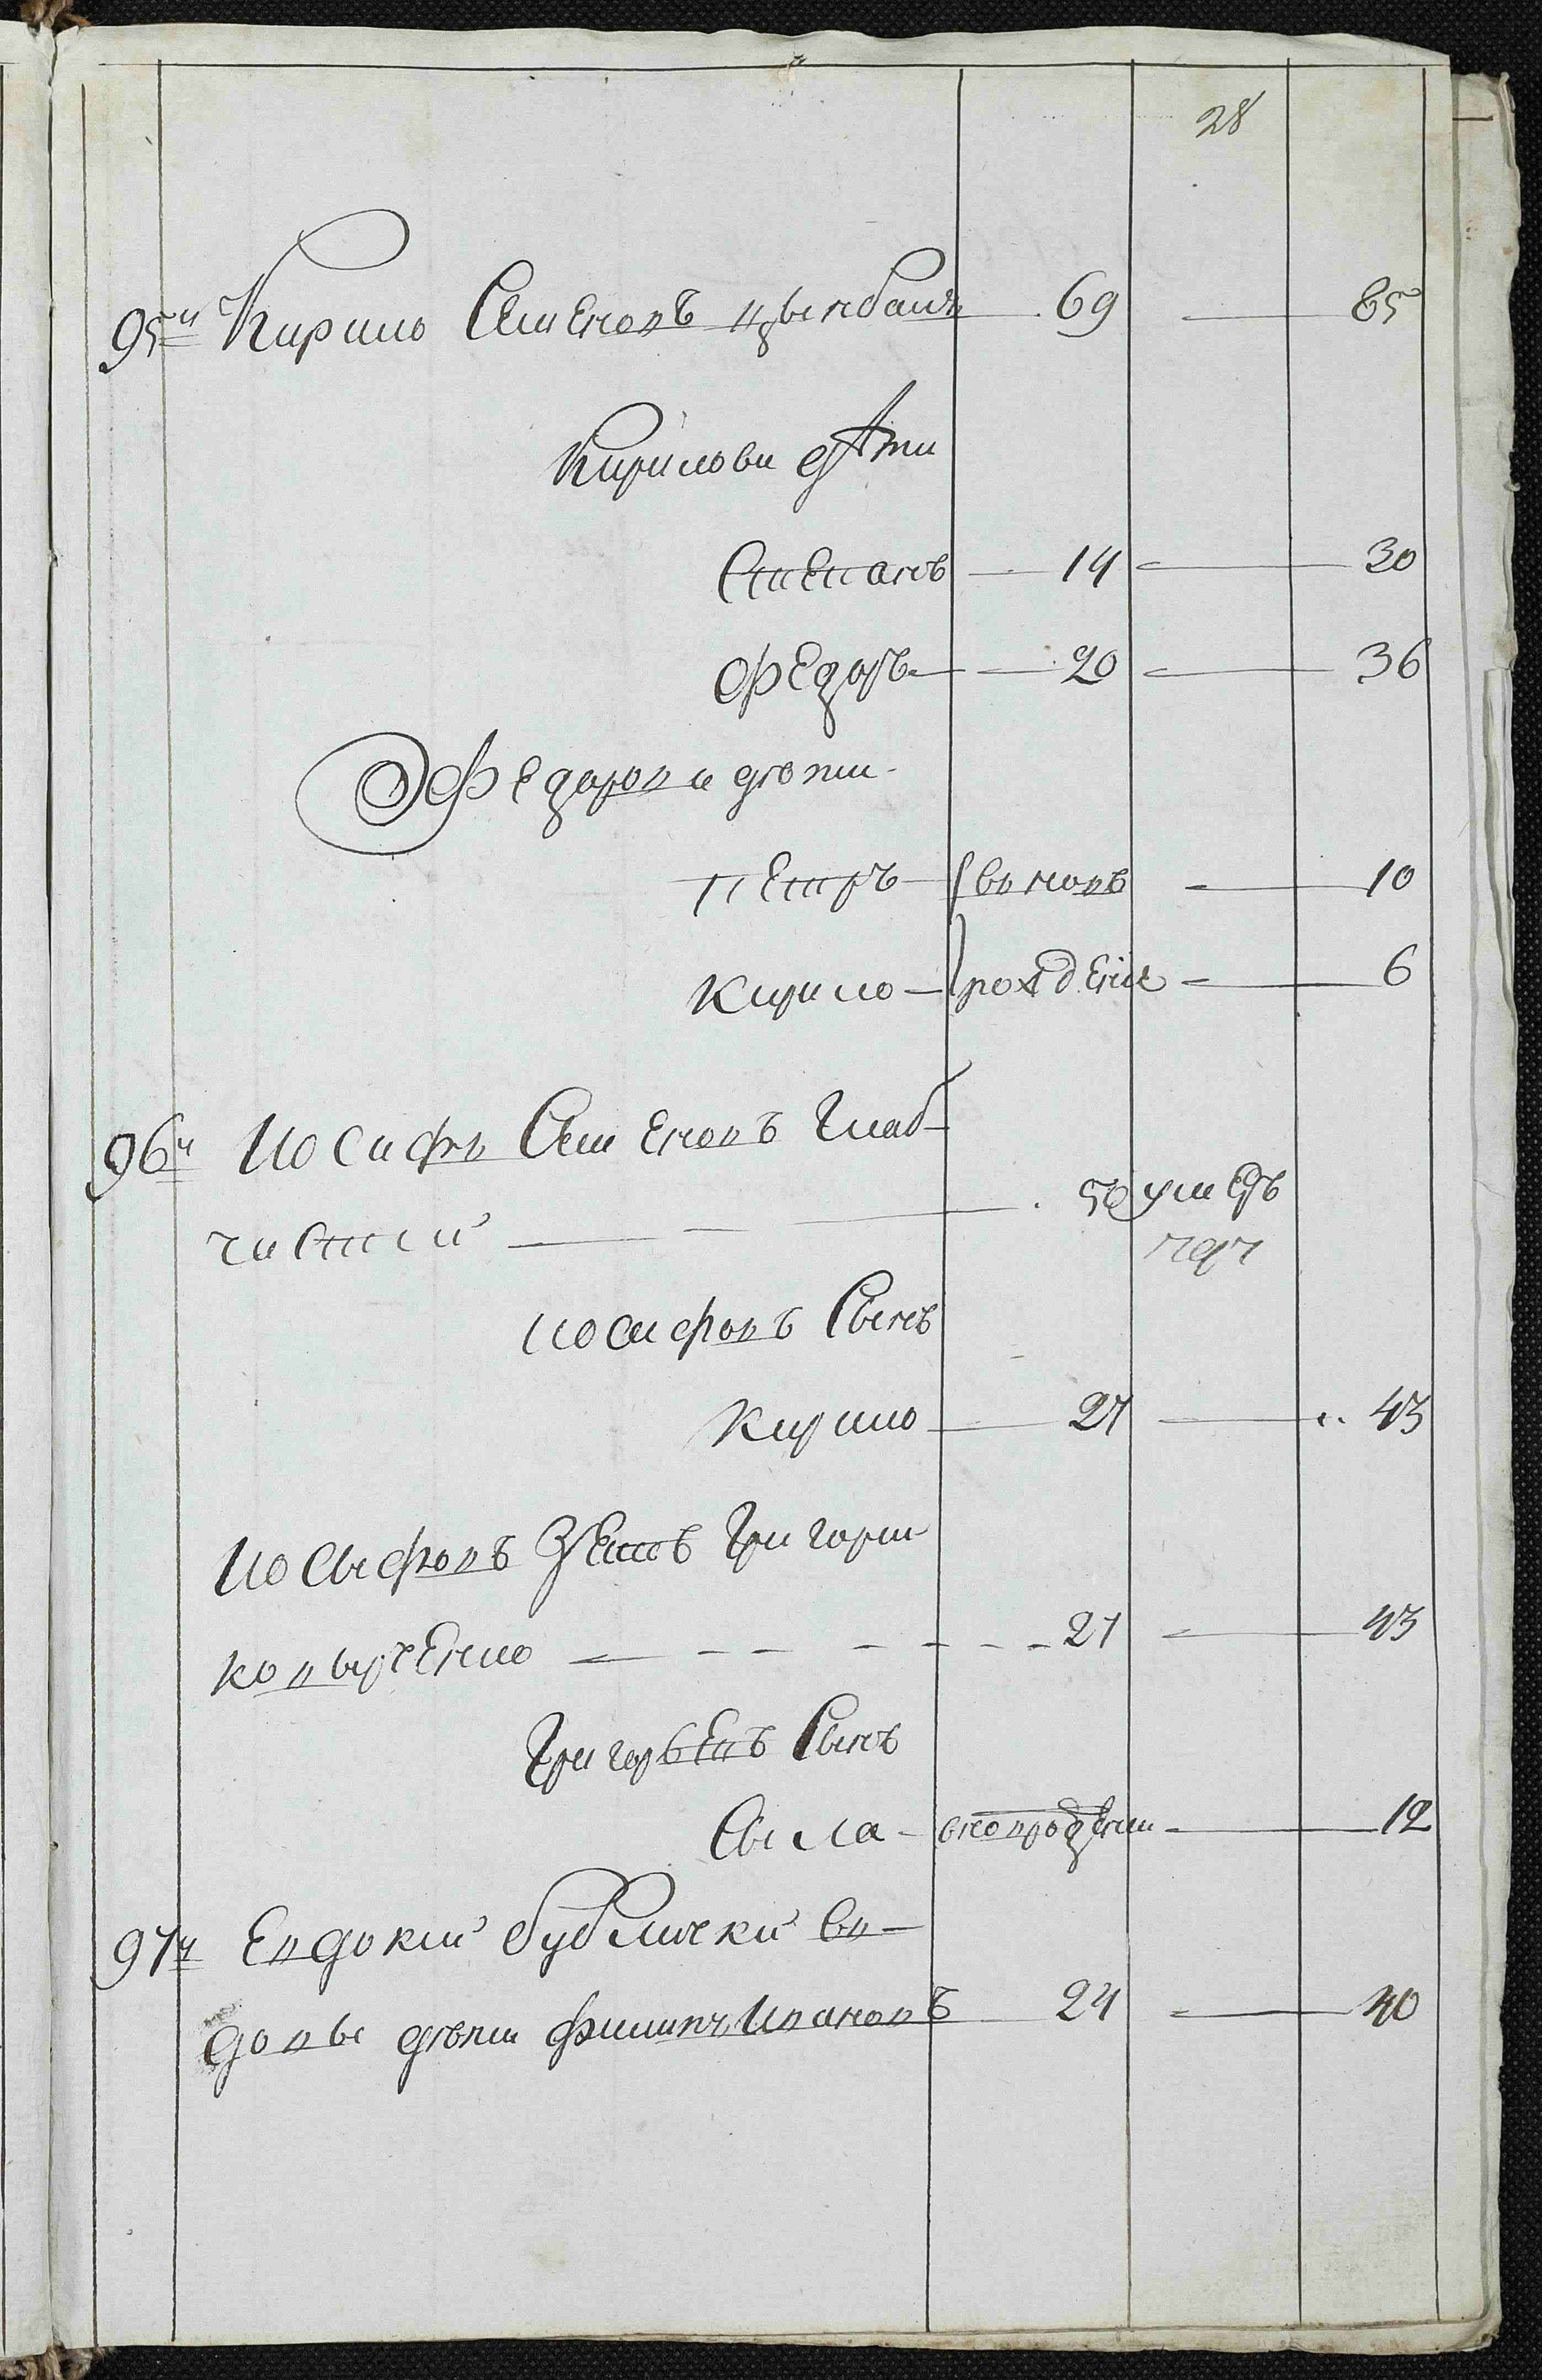 28
95й Кирило Семеновъ Цымбалъ 69 — 85
Кирилови дѣти
Степанъ — 14 — 30
Федоръ — 20 — 36
Федорови дѣти
Петръ — вновъ — 10
Кирило — рожденіе — 6
96й Иосифъ Семеновъ
58 умеръ
Иосифовъ Сынъ
Кирило — 27 — 43
Иосифовъ Зеть Григори
— 27 — 43
Григорьевъ Сынъ
Сыла — вноврождени — 12
97й Евдокии бублички во-
довы дѣти Филипъ Ивановъ 24 — 40